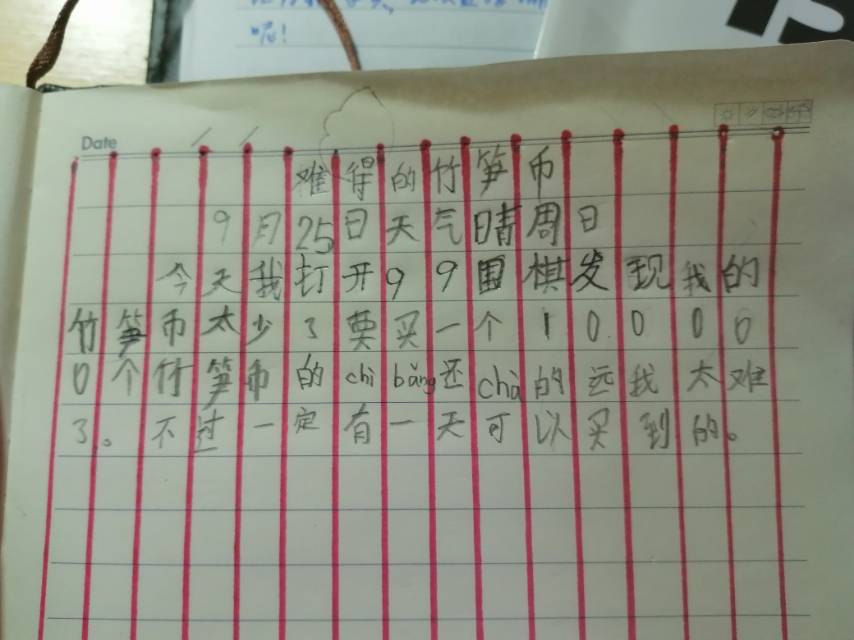 呢!
Date
难得的竹笋币
9月25日天气晴周日
今天我打开99围棋发现我的
竹笋币太少了要买一个10000
0个竹笋币的chì bǎng还chà的远我太难
了。不过一定有一天可以买到的。